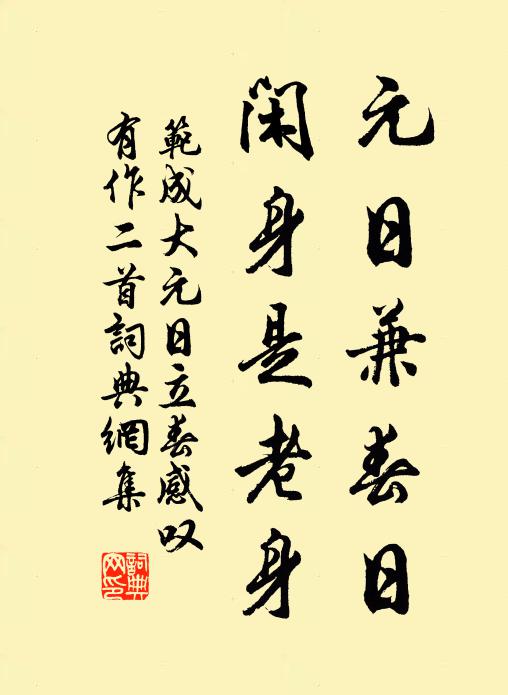 元日兼春日
閑身是老身
範成大元日立春感叹
有作二首詞典網集
詞典網印